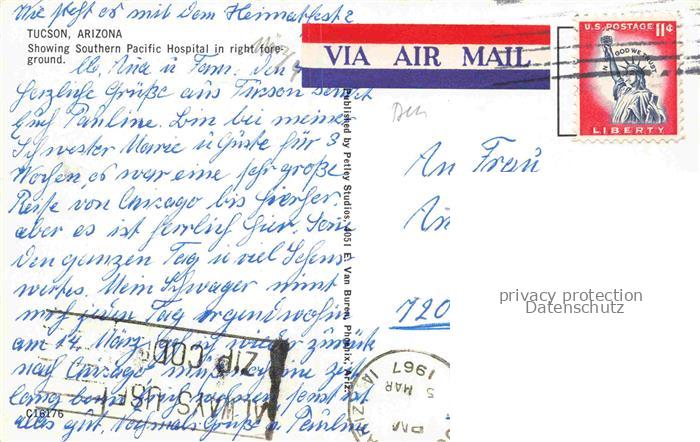 Wie steht es mit dem Heimatfest?
TUCSON, ARIZONA
Showing Southern Pacific Hospital in right fore-
ground.
Lb. Anna u Fam. Den
herzliche Grüße aus Tucson sendet
Euch Pauline. Bin bei meine
Schwester Marie u Guste für 3
Wochen, es war eine sehr große
Reise von Chicago bis hierher.
aber es ist herrlich hier, Sonne
den ganzen Tag u viel Sehens
wertes. Mein Schwager nimmt
mich jeden Tag irgendwohin
am 14. März wieder zurück
nach Chicago
lang sonst ist
alles gut, Nochmals Grüße Pauline
C16176
Published by Petley Studios, 4051 E. Van Buren, Phoenix, Ariz.
VIA AIR MAIL
U.S. POSTAGE 11¢
IN GOD WE TRUST
LIBERTY
An Frau
An
720
privacy protection
Datenschutz
ALWAYS USE
ZIP CODE
PM
5 MAR
1967